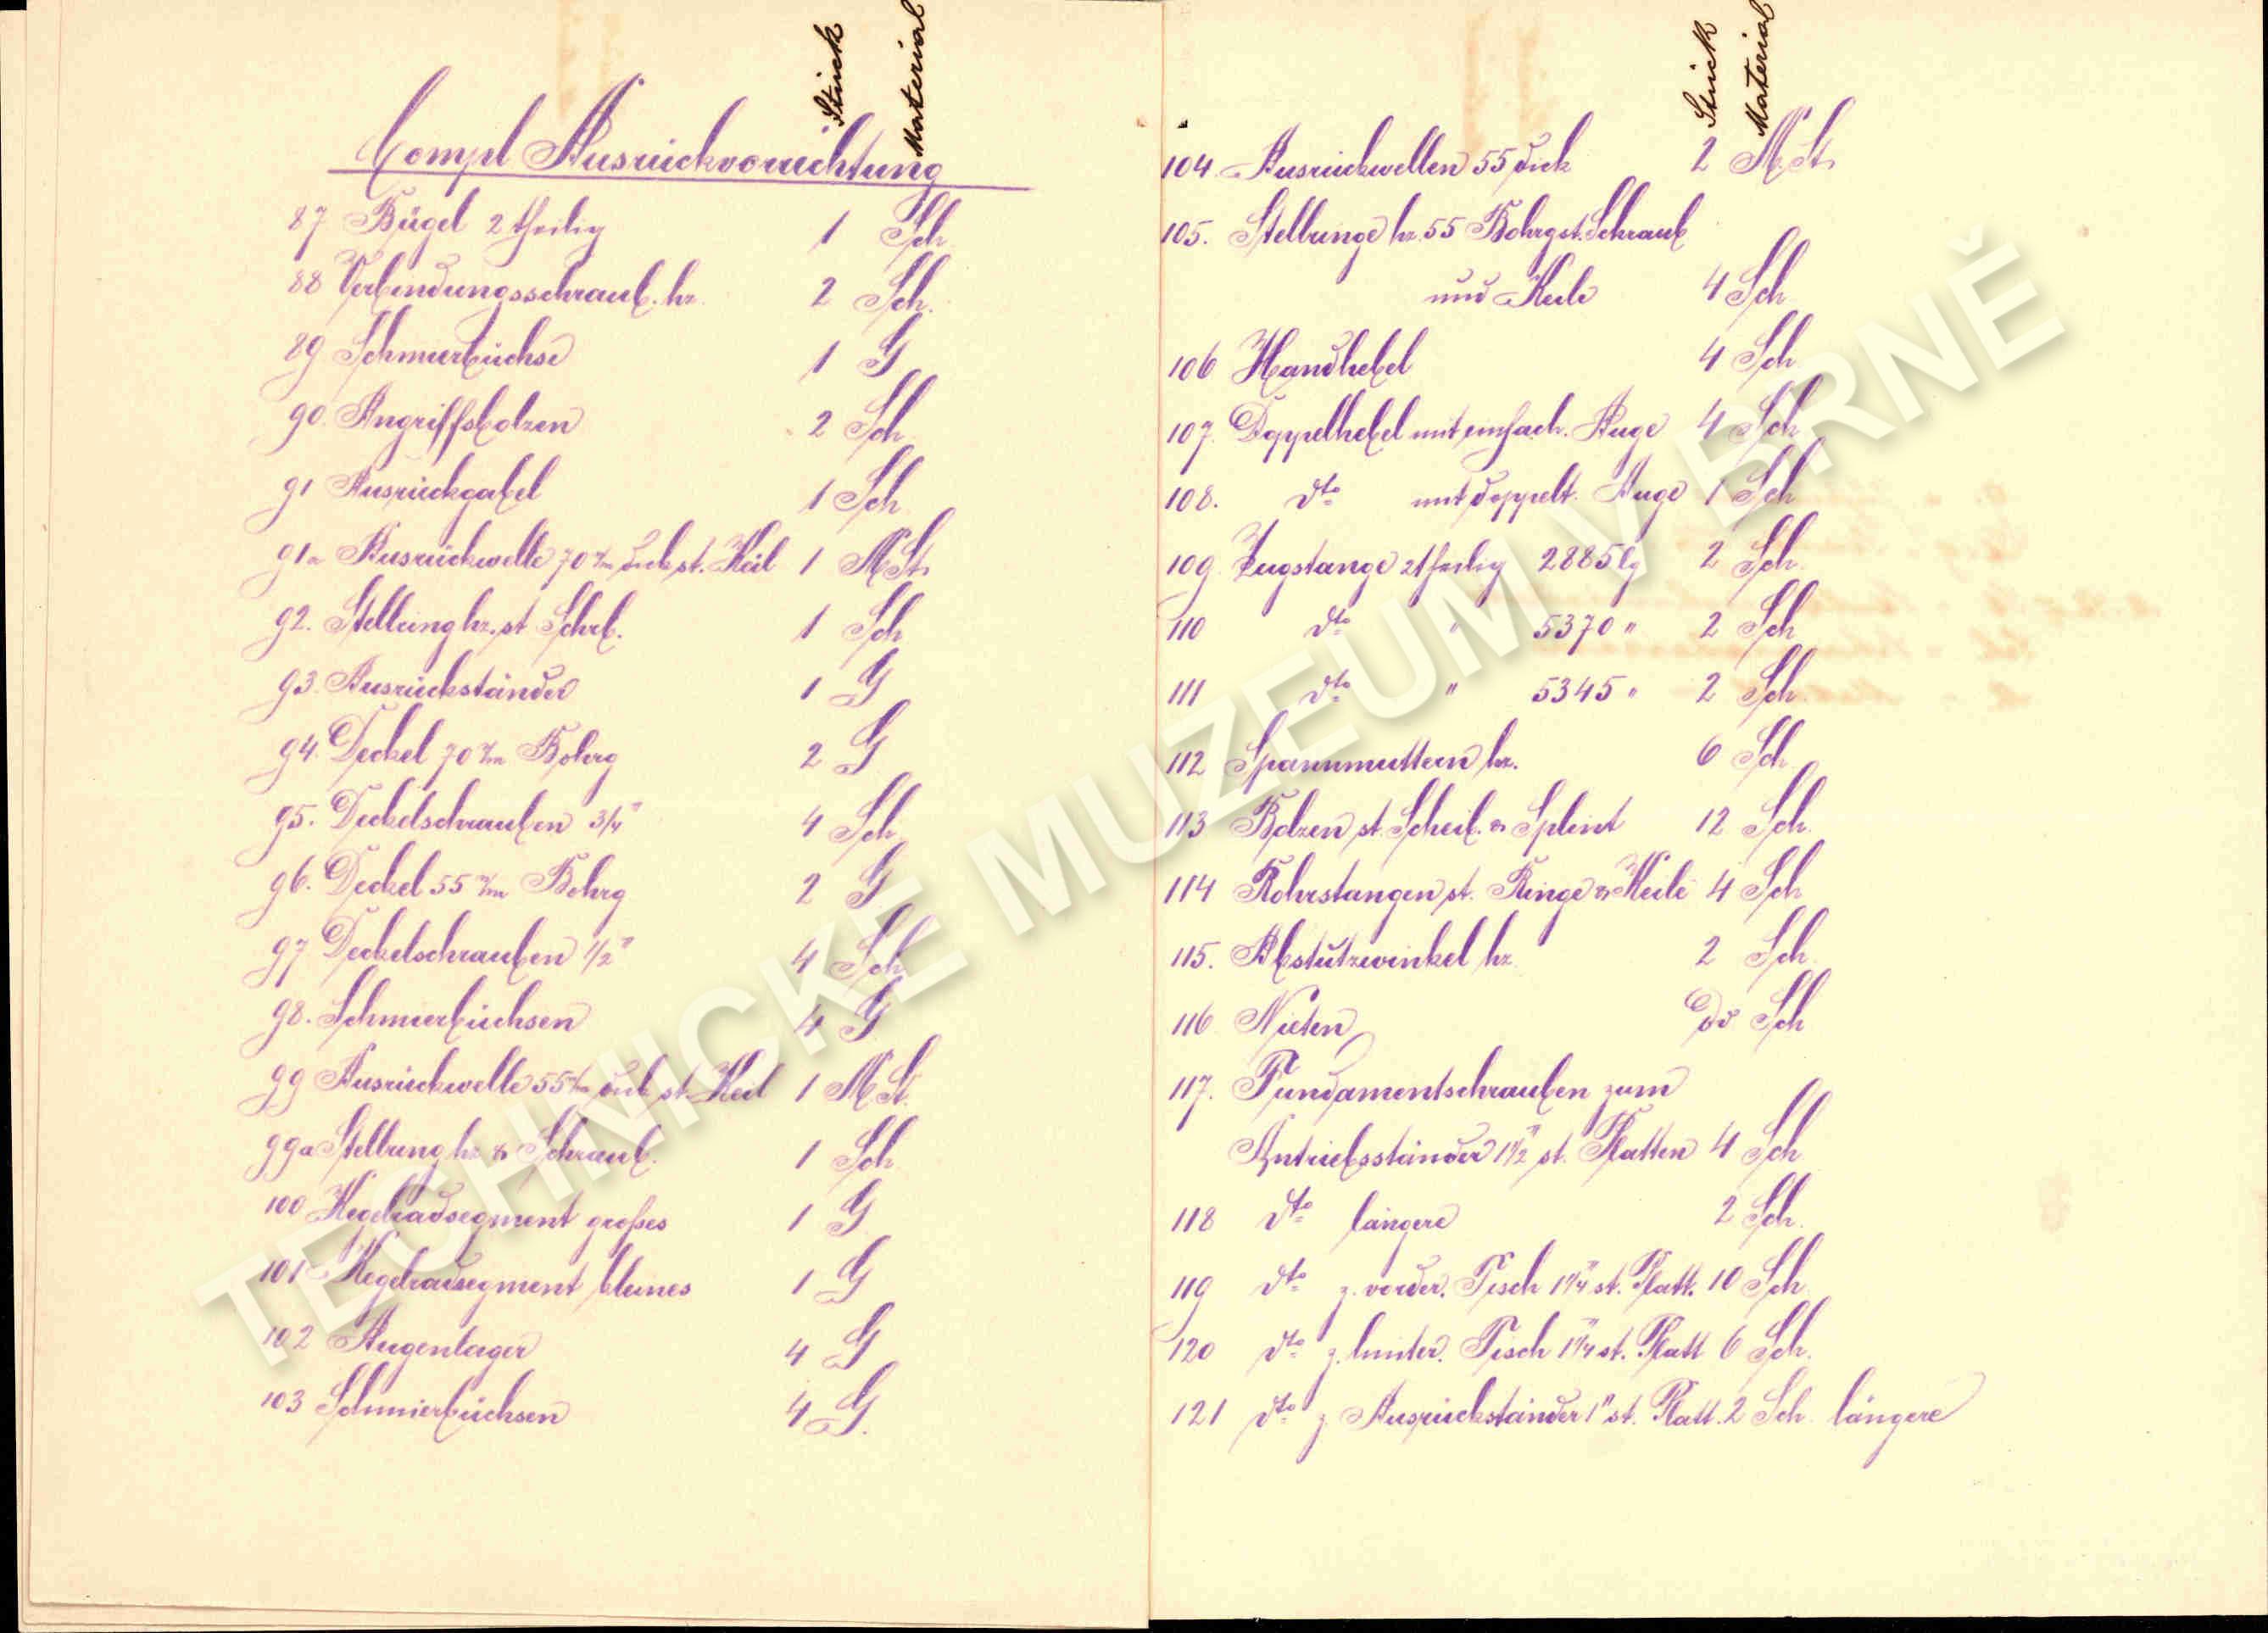 Stück Material
Compl Ausrückvorrichtung
87 Bügel 2 theilig 1 Sch
88 Verbindungsschraub. hz. 2 Sch.
89 Schmierbüchse 1 G
90. Angriffsbolzen 2 Sch
91 Ausrückgabel 1 Sch
91a Ausrückwelle 70 m/m dick st. Keil 1 M St.
92. Stellring hz. st Schrb. 1 Sch
93. Ausrückständer 1 G
94. Deckel 70 m/m Bohrg 2 G
95. Deckelschrauben 3/4" 4 Sch
96. Deckel 55 m/m Bohrg 2 G
97 Deckelschrauben 1/2" 4 Sch
98. Schmierbüchsen 4 G
99 Ausrückwelle 55 m/m dick st. Keil 1 M St.
99a Stellring hz & Schraub. 1 Sch
100 Kegelradsegment großes 1 G
101 Kegelradsegment kleines 1 G
102 Augenlager 4 G
103 Schmierbüchsen 4 G.
Stück Material
104 Ausrückwellen 55 dick 2 M. St.
105. Stellringe hz. 55 Bohrg st. Schraub
und Keile 4 Sch
106 Handhebel 4 Sch
107. Doppelhebel mit einfach. Auge 4 Sch
108. dto mit doppelt. Auge 1 Sch
109. Zugstange 2theilig 2885 lg 2 Sch.
110 dto " 5370 " 2 Sch
111 dto " 5345 " 2 Sch.
112 Spannmuttern hz. 6 Sch
113 Bolzen st. Scheib. & Splint 12 Sch.
114 Rohrstangen st. Ringe & Keile 4 Sch
115. Abstützwinkel hz. 2 Sch.
116 Nieten Sch
117. Fundamentschrauben zum
Antriebsständer 1 1/2" st. Platten 4 Sch
118 dto längere 2 Sch.
119 dto z. vorder. Tisch 1 1/4" st. Platt. 10 Sch
120 dto z. hinter. Tisch 1 1/4" st. Platt 6 Sch.
121 dto z. Ausrückständer 1" st. Platt. 2 Sch. längere
TECHNICKÉ MUZEUM V BRNĚ